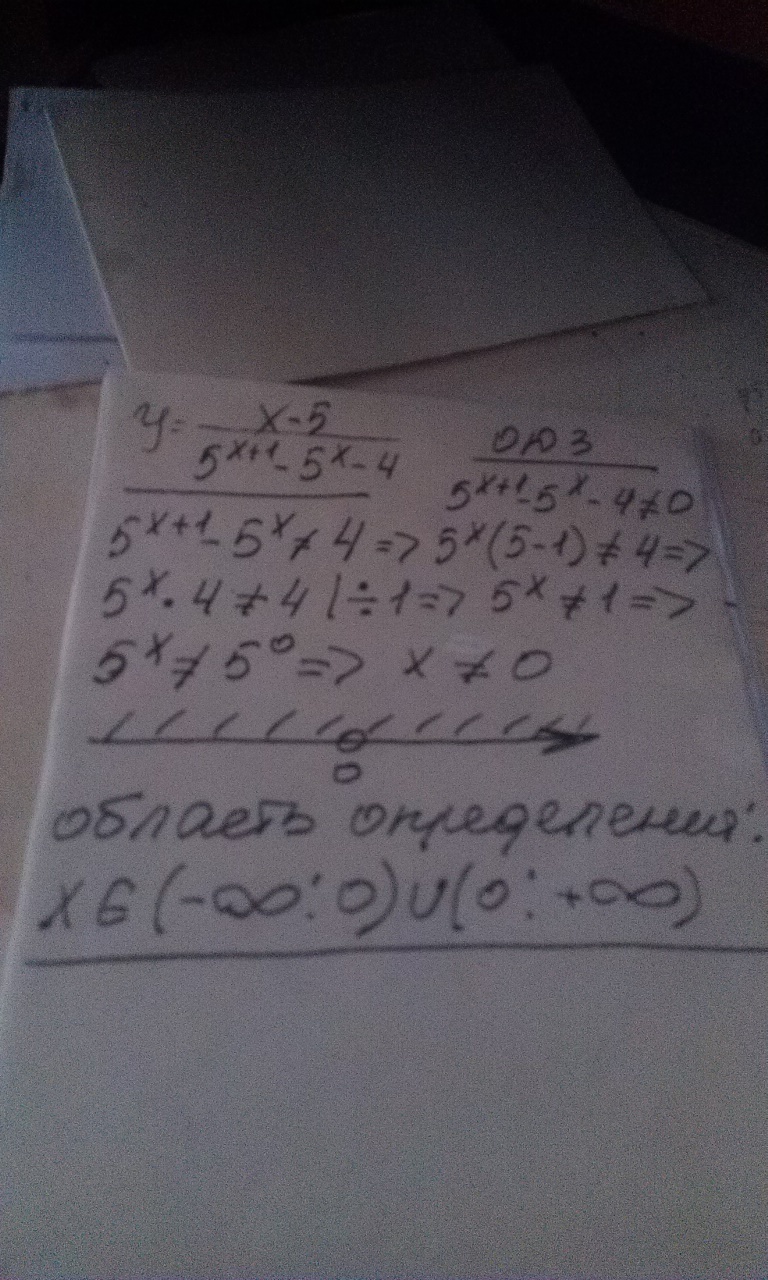 y = x-5 / 5^(x+1) - 5^x - 4
ОДЗ
5^(x+1) - 5^x - 4 ≠ 0
5^(x+1) - 5^x ≠ 4 => 5^x(5-1) ≠ 4 =>
5^x · 4 ≠ 4 | ÷ 1 => 5^x ≠ 1 =>
5^x ≠ 5^0 => x ≠ 0
0
область определения:
x ∈ (-∞; 0) ∪ (0; +∞)